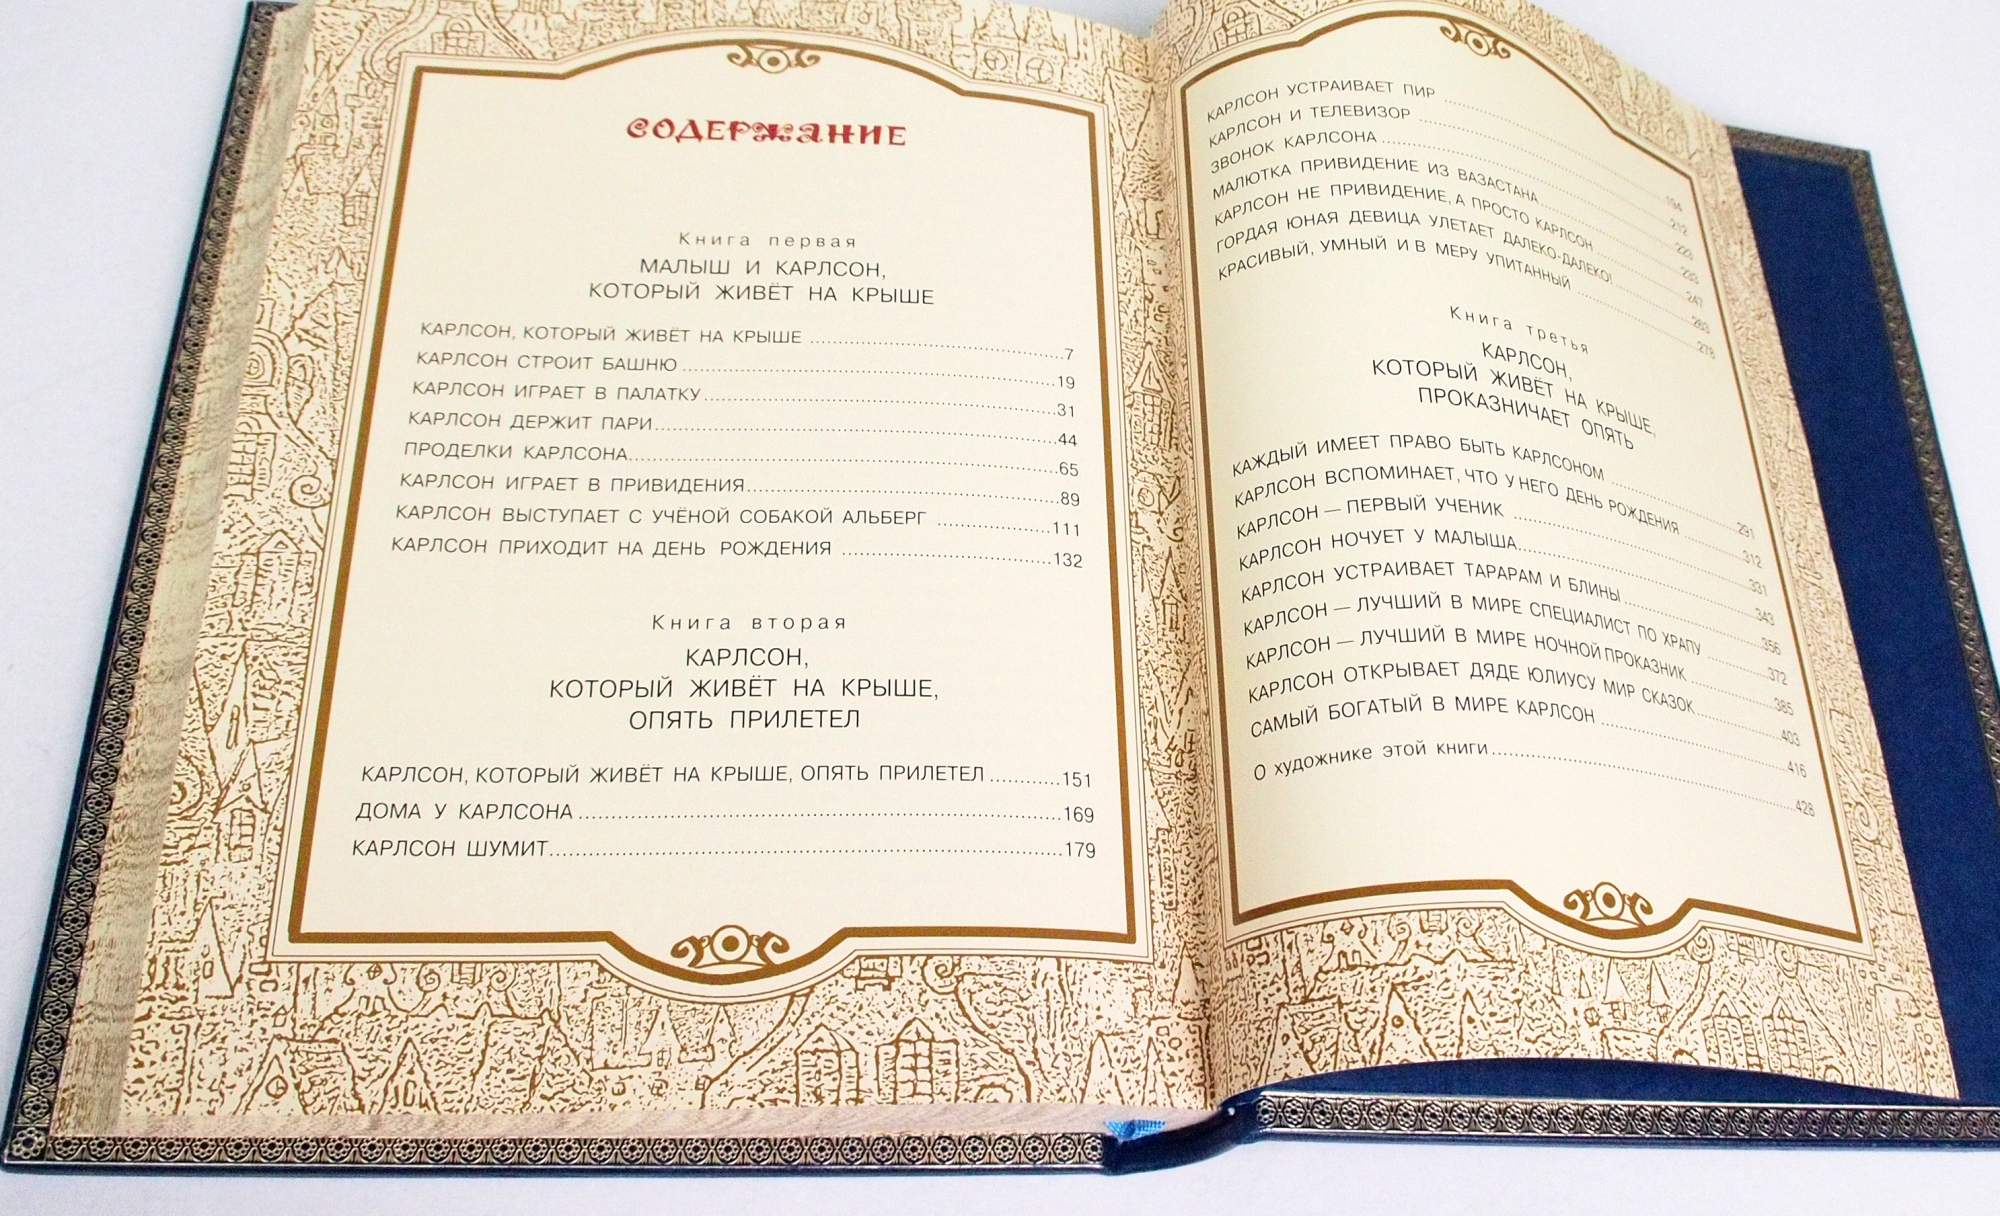 СОДЕРЖАНИЕ
Книга первая
МАЛЫШ И КАРЛСОН,
КОТОРЫЙ ЖИВЁТ НА КРЫШЕ
КАРЛСОН, КОТОРЫЙ ЖИВЁТ НА КРЫШЕ ..........7
КАРЛСОН СТРОИТ БАШНЮ ..........19
КАРЛСОН ИГРАЕТ В ПАЛАТКУ ..........31
КАРЛСОН ДЕРЖИТ ПАРИ ..........44
ПРОДЕЛКИ КАРЛСОНА ..........65
КАРЛСОН ИГРАЕТ В ПРИВИДЕНИЯ ..........89
КАРЛСОН ВЫСТУПАЕТ С УЧЁНОЙ СОБАКОЙ АЛЬБЕРГ ..........111
КАРЛСОН ПРИХОДИТ НА ДЕНЬ РОЖДЕНИЯ ..........132
Книга вторая
КАРЛСОН,
КОТОРЫЙ ЖИВЁТ НА КРЫШЕ,
ОПЯТЬ ПРИЛЕТЕЛ
КАРЛСОН, КОТОРЫЙ ЖИВЁТ НА КРЫШЕ, ОПЯТЬ ПРИЛЕТЕЛ ..........151
ДОМА У КАРЛСОНА ..........169
КАРЛСОН ШУМИТ ..........179
КАРЛСОН УСТРАИВАЕТ ПИР ..........194
КАРЛСОН И ТЕЛЕВИЗОР ..........212
ЗВОНОК КАРЛСОНА ..........223
МАЛЮТКА ПРИВИДЕНИЕ ИЗ ВАЗАСТАНА ..........233
КАРЛСОН НЕ ПРИВИДЕНИЕ, А ПРОСТО КАРЛСОН ..........247
ГОРДАЯ ЮНАЯ ДЕВИЦА УЛЕТАЕТ ДАЛЕКО-ДАЛЕКО! ..........263
КРАСИВЫЙ, УМНЫЙ И В МЕРУ УПИТАННЫЙ ..........278
Книга третья
КАРЛСОН,
КОТОРЫЙ ЖИВЁТ НА КРЫШЕ,
ПРОКАЗНИЧАЕТ ОПЯТЬ
КАЖДЫЙ ИМЕЕТ ПРАВО БЫТЬ КАРЛСОНОМ ..........291
КАРЛСОН ВСПОМИНАЕТ, ЧТО У НЕГО ДЕНЬ РОЖДЕНИЯ ..........312
КАРЛСОН — ПЕРВЫЙ УЧЕНИК ..........331
КАРЛСОН НОЧУЕТ У МАЛЫША ..........343
КАРЛСОН УСТРАИВАЕТ ТАРАРАМ И БЛИНЫ ..........356
КАРЛСОН — ЛУЧШИЙ В МИРЕ СПЕЦИАЛИСТ ПО ХРАПУ ..........372
КАРЛСОН — ЛУЧШИЙ В МИРЕ НОЧНОЙ ПРОКАЗНИК ..........385
КАРЛСОН ОТКРЫВАЕТ ДЯДЕ ЮЛИУСУ МИР СКАЗОК ..........403
САМЫЙ БОГАТЫЙ В МИРЕ КАРЛСОН ..........416
О художнике этой книги ..........428